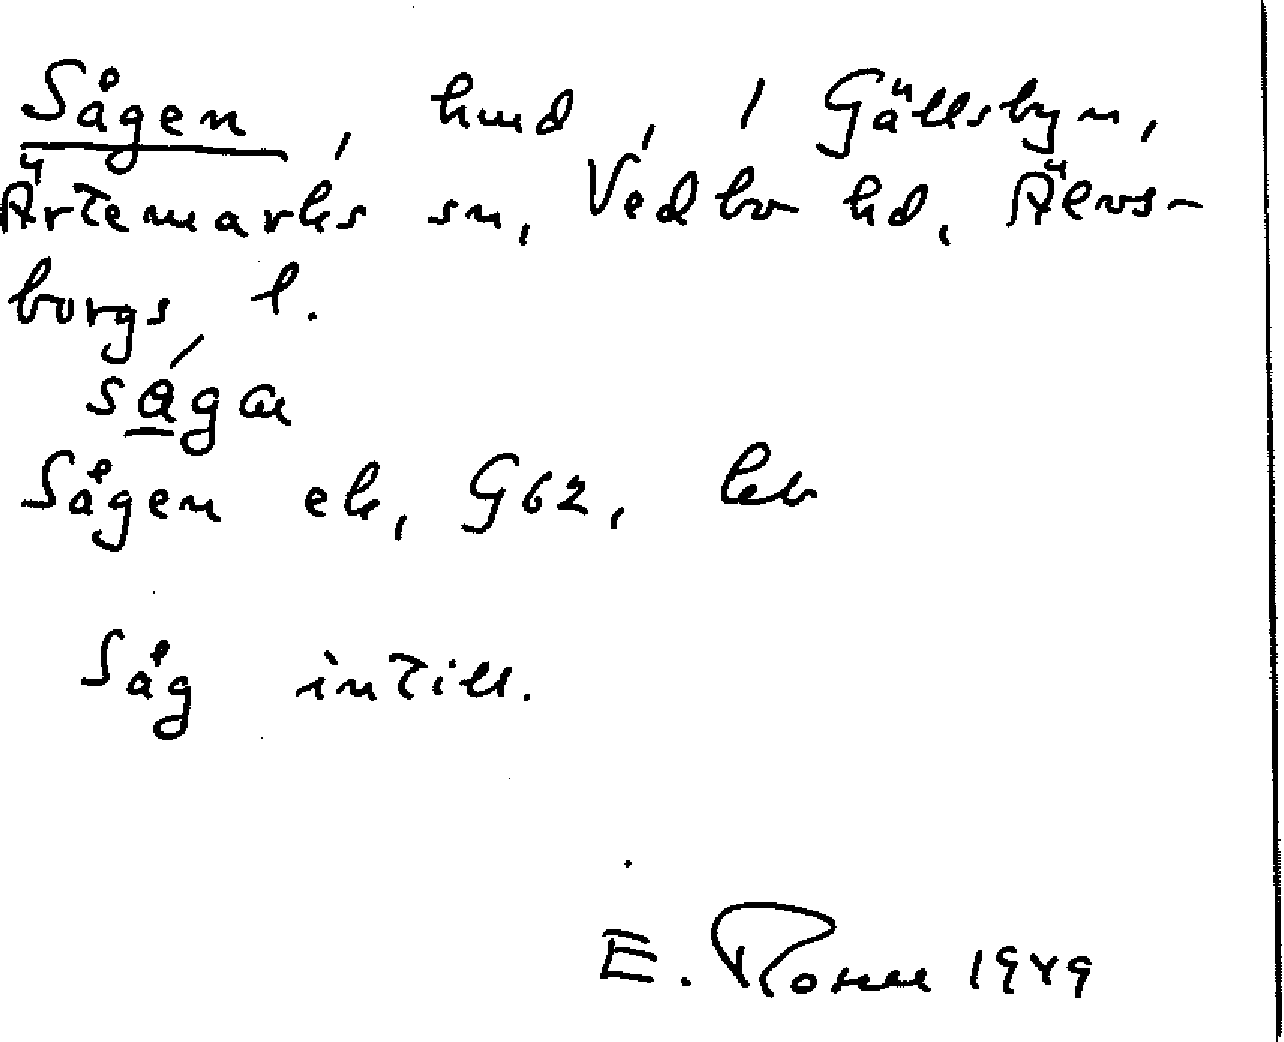 Sågen, hmd, i Gällsbyn,
Ärtemarks sn, Vedbo hd, Älvs-
borgs l.
Sågen ek, G62, kb
Såg intill.
E. Rosell 1949